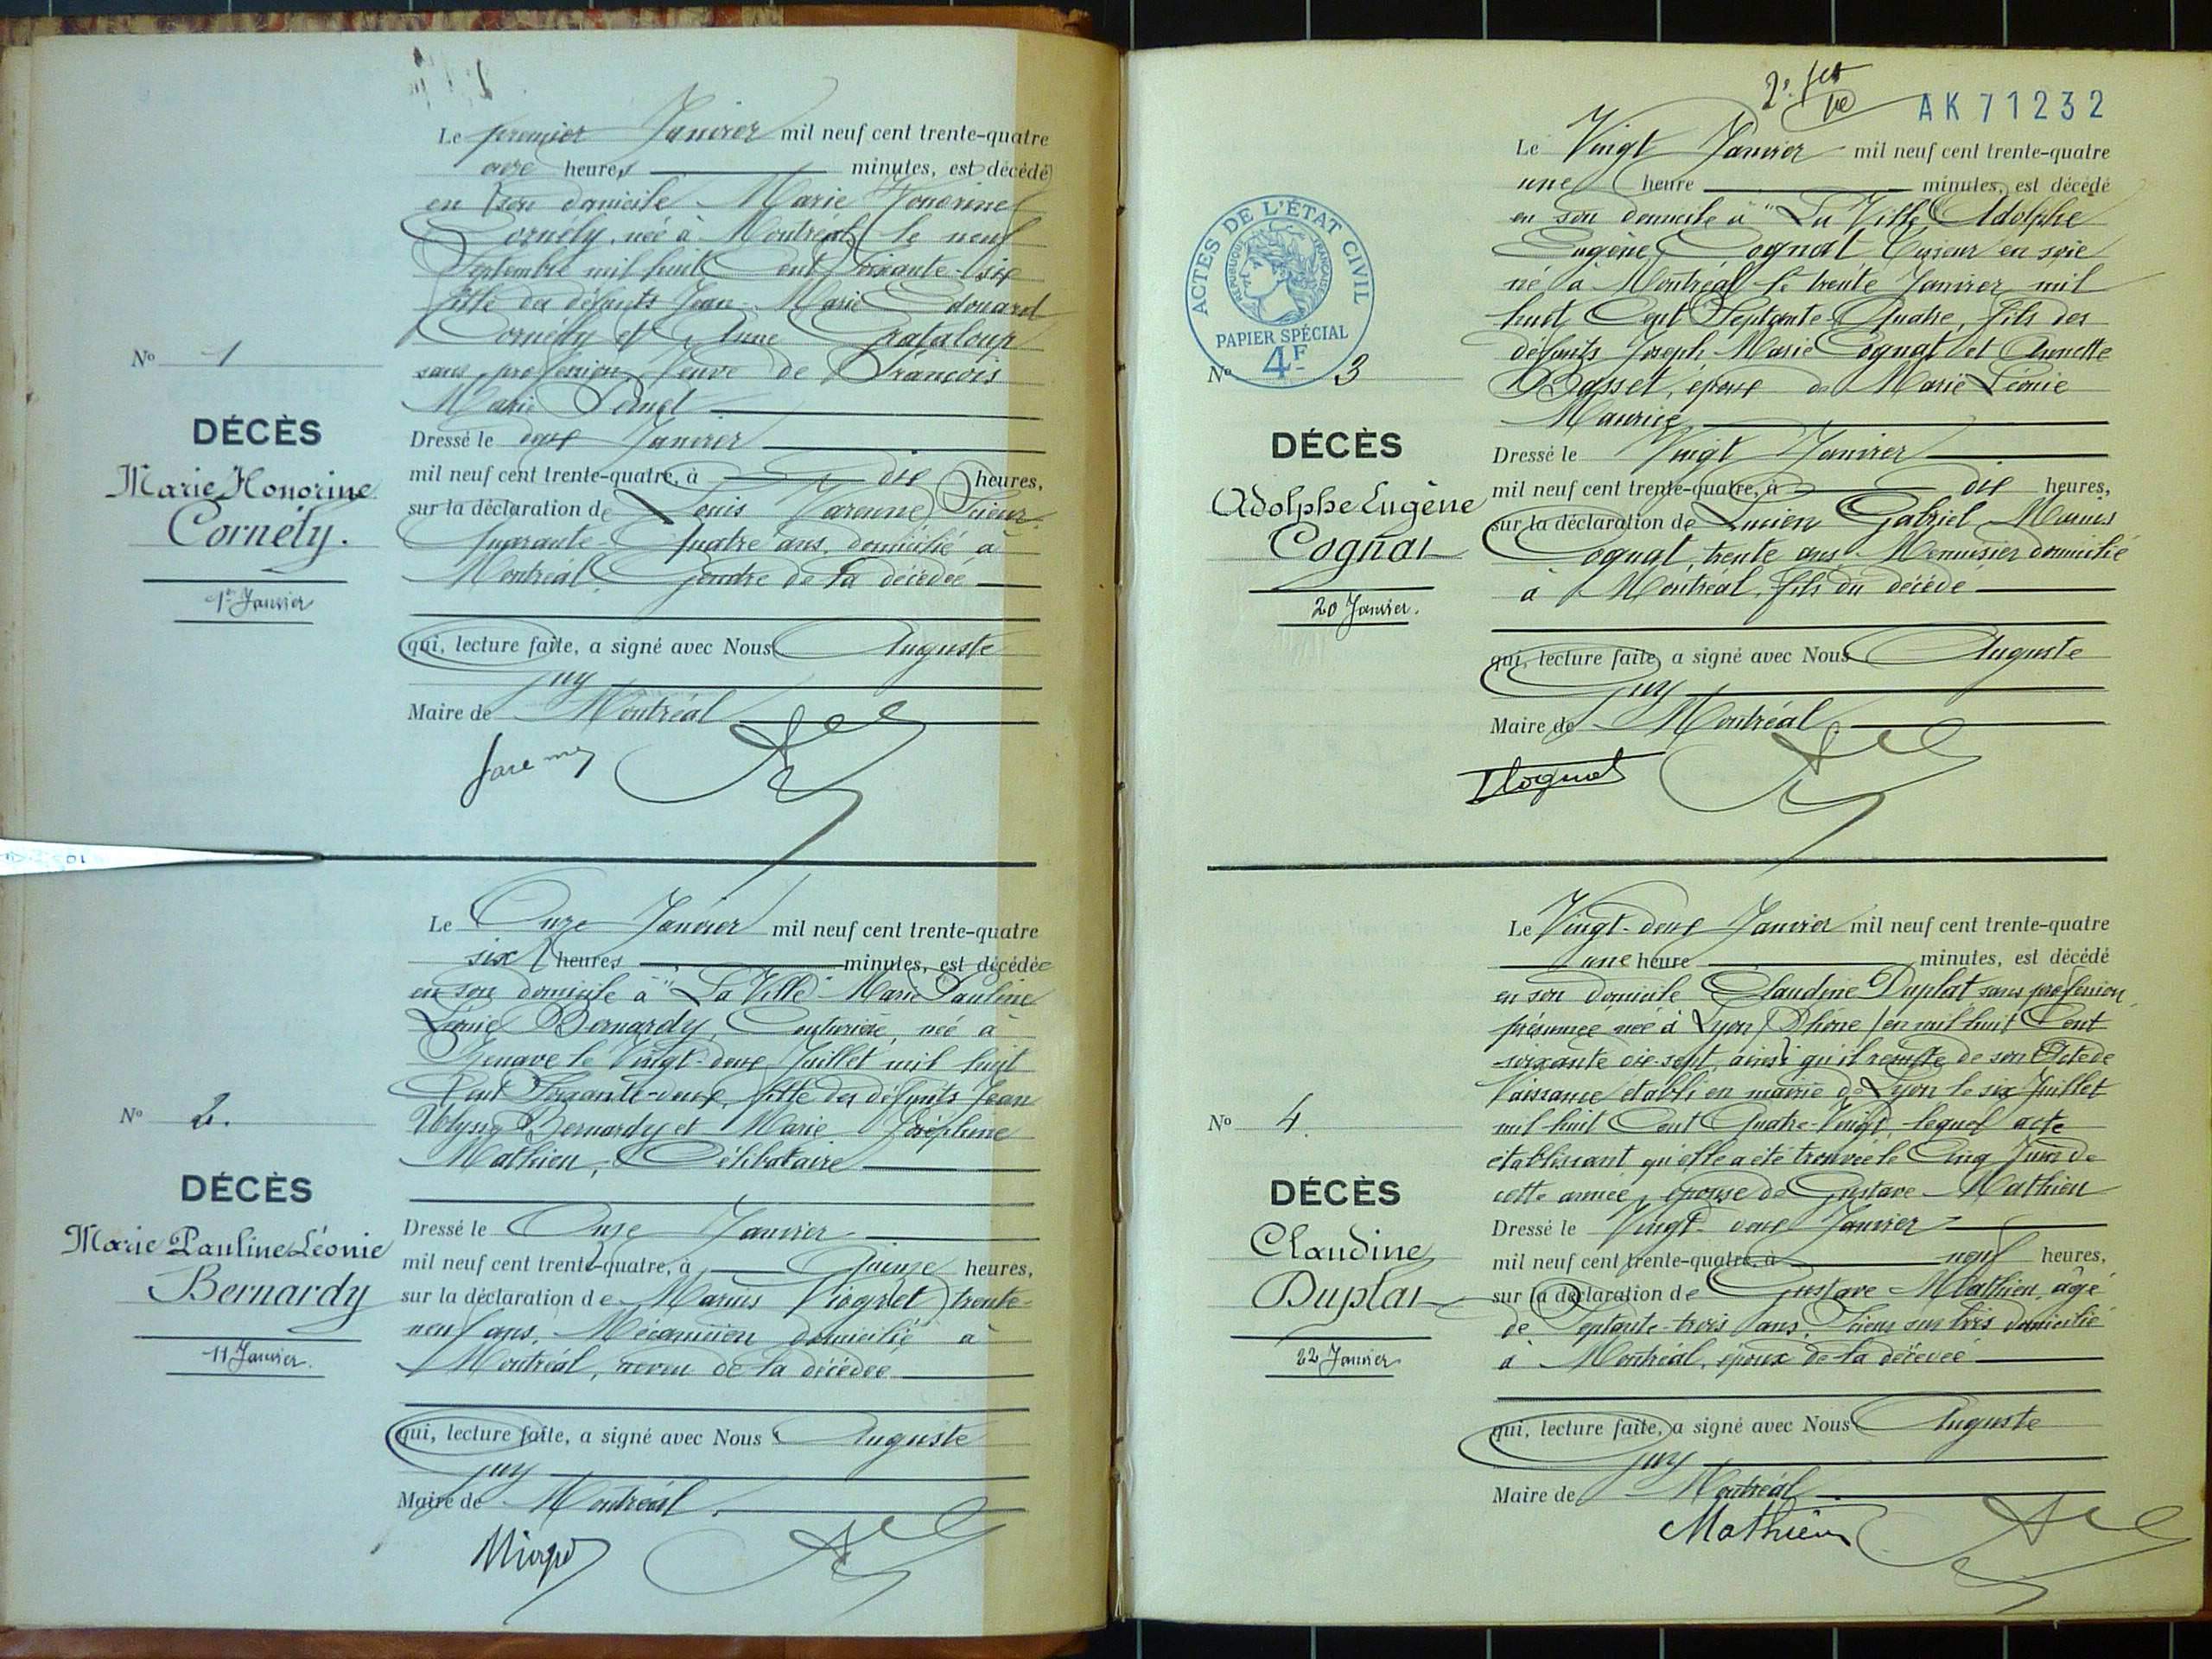 Le premier Janvier mil neuf cent trente-quatre
onze heures minutes, est décédé
en son domicile Marie Honorine
Cornély, née à Montréal le neuf
Septembre mil huit Cent Soixante-six
fille des défunts Jean-Marie Edouard
Cornély et Anne Grataloup
sans profession, Veuve de François
Marie
N° 1
DÉCÈS
Marie Honorine
Cornély.
1er Janvier
Dressé le deux Janvier
mil neuf cent trente-quatre, à dix heures,
sur la déclaration de Louis Varenne Scieur
Quarante-Quatre ans, domicilié à
Montréal Gendre de la décédée
qui, lecture faite, a signé avec Nous Auguste
Juy
Maire de Montréal
Le Onze Janvier mil neuf cent trente-quatre
six heures minutes, est décédée
en son domicile à "La Ville" Marie Pauline
Léonie Bernardy, Couturière, née à
le Vingt-deux Juillet mil huit
Cent Soixante-deux, fille des défunts Jean
Ulysse Bernardy et Marie Joséphine
Mathieu, Célibataire
N° 2.
DÉCÈS
Marie Pauline Léonie
Bernardy
11 Janvier.
Dressé le Onze Janvier
mil neuf cent trente-quatre, à Quinze heures,
sur la déclaration de Marius trente-
neuf ans, Mécanicien domicilié à
Montréal, neveu de la décédée
qui, lecture faite, a signé avec Nous Auguste
Juy
Maire de Montréal
AK71232
Le Vingt Janvier mil neuf cent trente-quatre
une heure minutes, est décédé
en son domicile à "La Ville" Adolphe
Eugène Cognat Tisseur en soie
né à Montréal le trente Janvier mil
huit Cent Septante-Quatre, fils des
défunts Joseph-Marie Cognat et Annette
Basset, époux de Marie Léonie
Maurice
ACTES DE L'ÉTAT CIVIL
RÉPUBLIQUE FRANÇAISE
PAPIER SPÉCIAL
4F
N° 3
DÉCÈS
Adolphe Eugène
Cognat
20 Janvier.
Dressé le Vingt Janvier
mil neuf cent trente-quatre, à dix heures,
sur la déclaration de Lucien Gabriel Marius
Cognat, trente ans Menuisier domicilié
à Montréal, fils du décédé
qui, lecture faite, a signé avec Nous Auguste
Juy
Maire de Montréal
Cognat
Le Vingt-deux Janvier mil neuf cent trente-quatre
une heure minutes, est décédé
en son domicile Claudine Duplat sans profession,
présumée née à Lyon (Rhône) en mil huit Cent
soixante dix-sept, ainsi qu'il résulte de son Acte de
Naissance établi en mairie de Lyon le six Juillet
mil huit Cent Quatre-Vingt, lequel acte
établissant qu'elle a été trouvée le Cinq Juin de
cette année, épouse de Gustave Mathieu
N° 4.
DÉCÈS
Claudine
Duplat
22 Janvier
Dressé le Vingt-deux Janvier
mil neuf cent trente-quatre, à neuf heures,
sur la déclaration de Gustave Mathieu, âgé
de Septante-trois ans, Scieur sur bois domicilié
à Montréal, époux de la décédée
qui, lecture faite, a signé avec Nous Auguste
Juy
Maire de Montréal
Mathieu